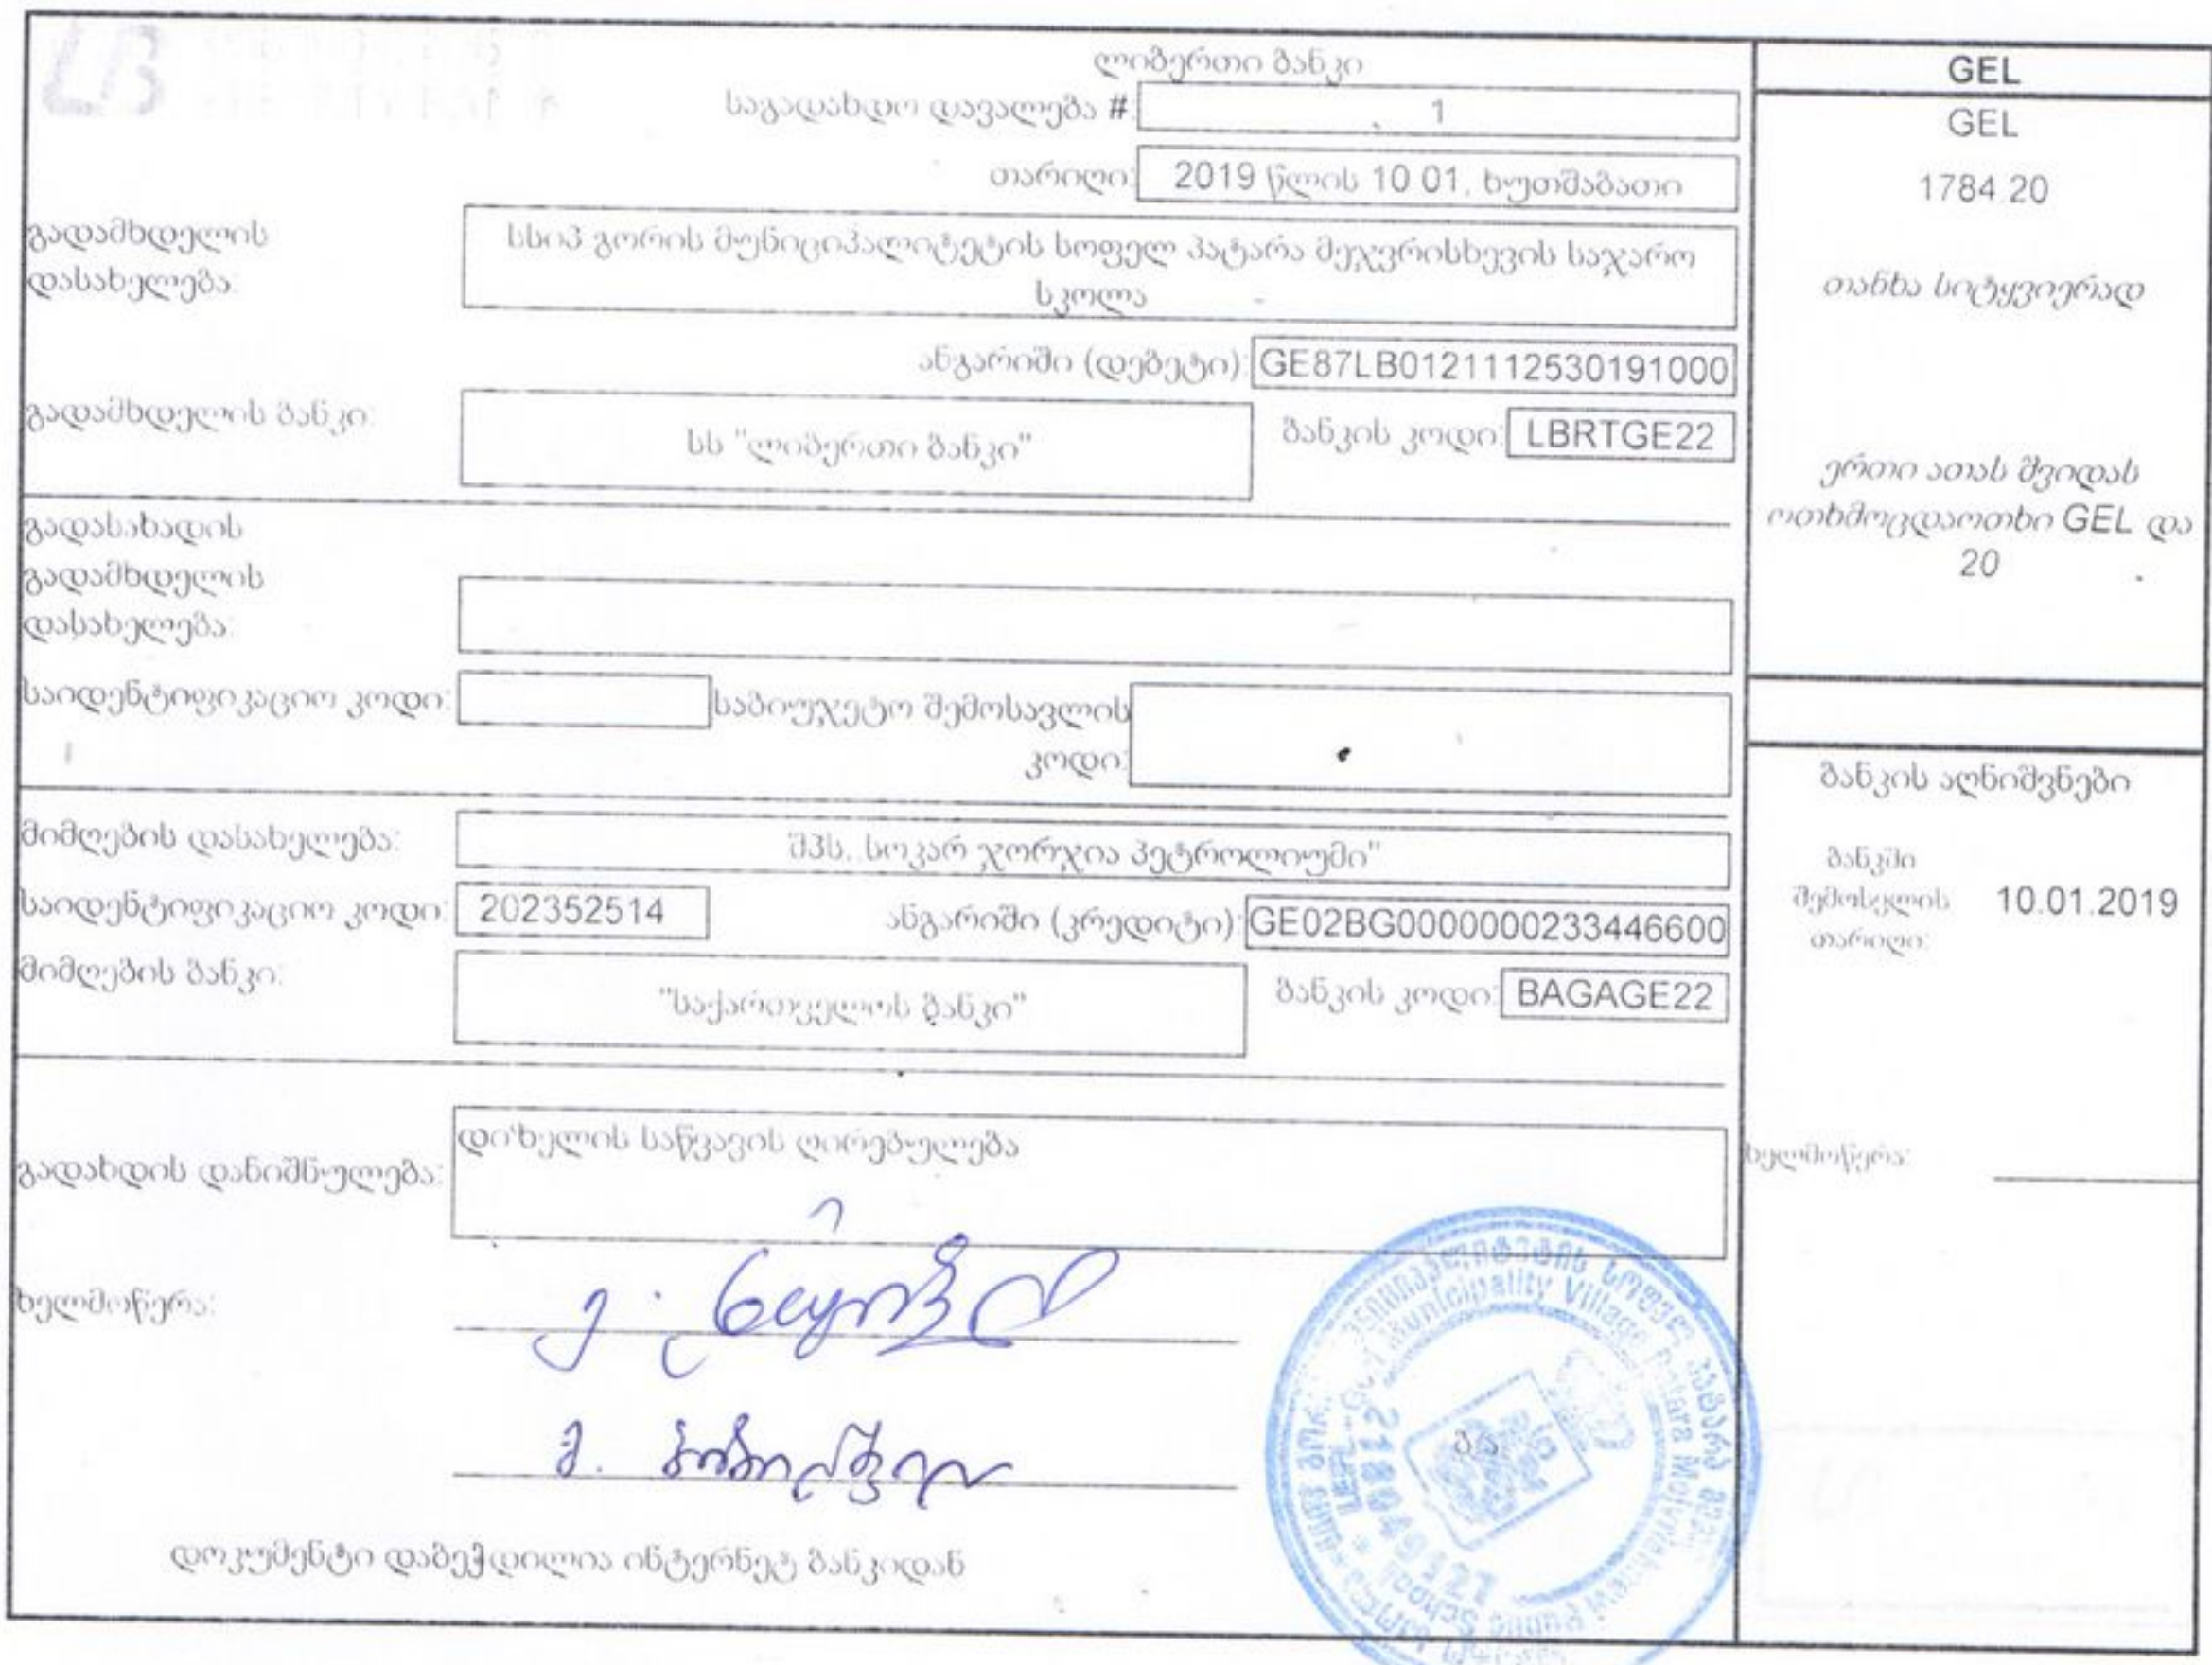 ლიბერთი ბანკი
საგადახდო დავალება #: 1
თარიღი: 2019 წლის 10 01, ხუთშაბათი
გადამხდელის
დასახელება:
სსიპ გორის მუნიციპალიტეტის სოფელ პატარა მეჯვრისხევის საჯარო
სკოლა
ანგარიში (დებეტი): GE87LB0121112530191000
გადამხდელის ბანკი:
სს "ლიბერთი ბანკი"
ბანკის კოდი: LBRTGE22
გადასახადის
გადამხდელის
დასახელება:
საიდენტიფიკაციო კოდი:
საბიუჯეტო შემოსავლის
კოდი:
მიმღების დასახელება: შპს,,სოკარ ჯორჯია პეტროლიუმი"
საიდენტიფიკაციო კოდი: 202352514
ანგარიში (კრედიტი): GE02BG0000000233446600
მიმღების ბანკი:
"საქართველოს ბანკი"
ბანკის კოდი: BAGAGE22
გადახდის დანიშნულება:
დიზელის საწვავის ღირებულება
ხელმოწერა:
ბ.ა.
დოკუმენტი დაბეჭდილია ინტერნეტ ბანკიდან
GEL
GEL
1784.20
თანხა სიტყვიერად
ერთი ათას შვიდას
ოთხმოცდაოთხი GEL და
20
ბანკის აღნიშვნები
ბანკში
შემოსვლის
თარიღი:
10.01.2019
ხელმოწერა:
Municipality Village Patara
LEPL
Public School